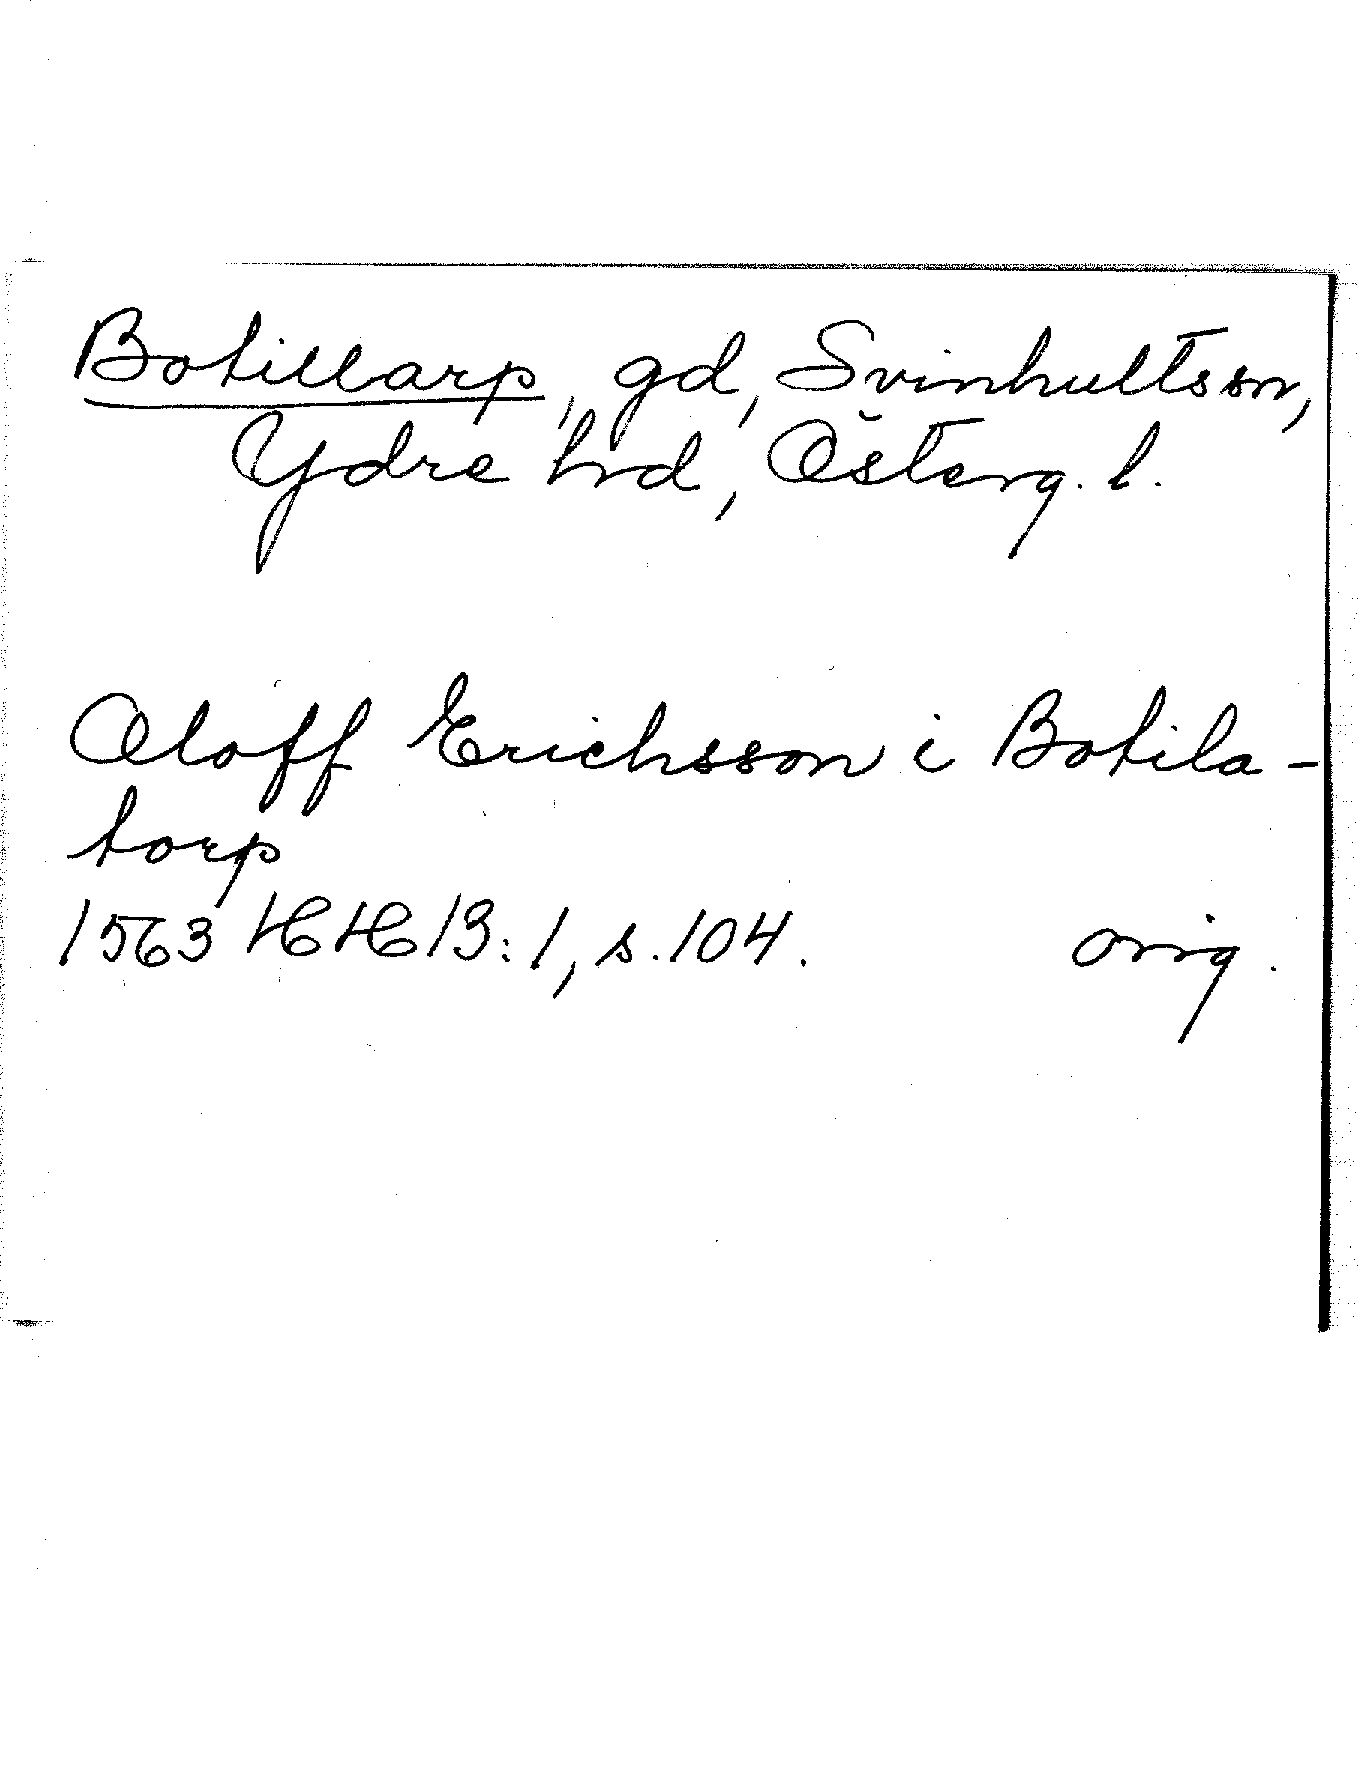 Botillarp, gd, Svinhultssn,
Ydre hd, Österg. l.
Oloff Erichsson i Botila-
torp
1563 HH 13:1, s. 104. orig.